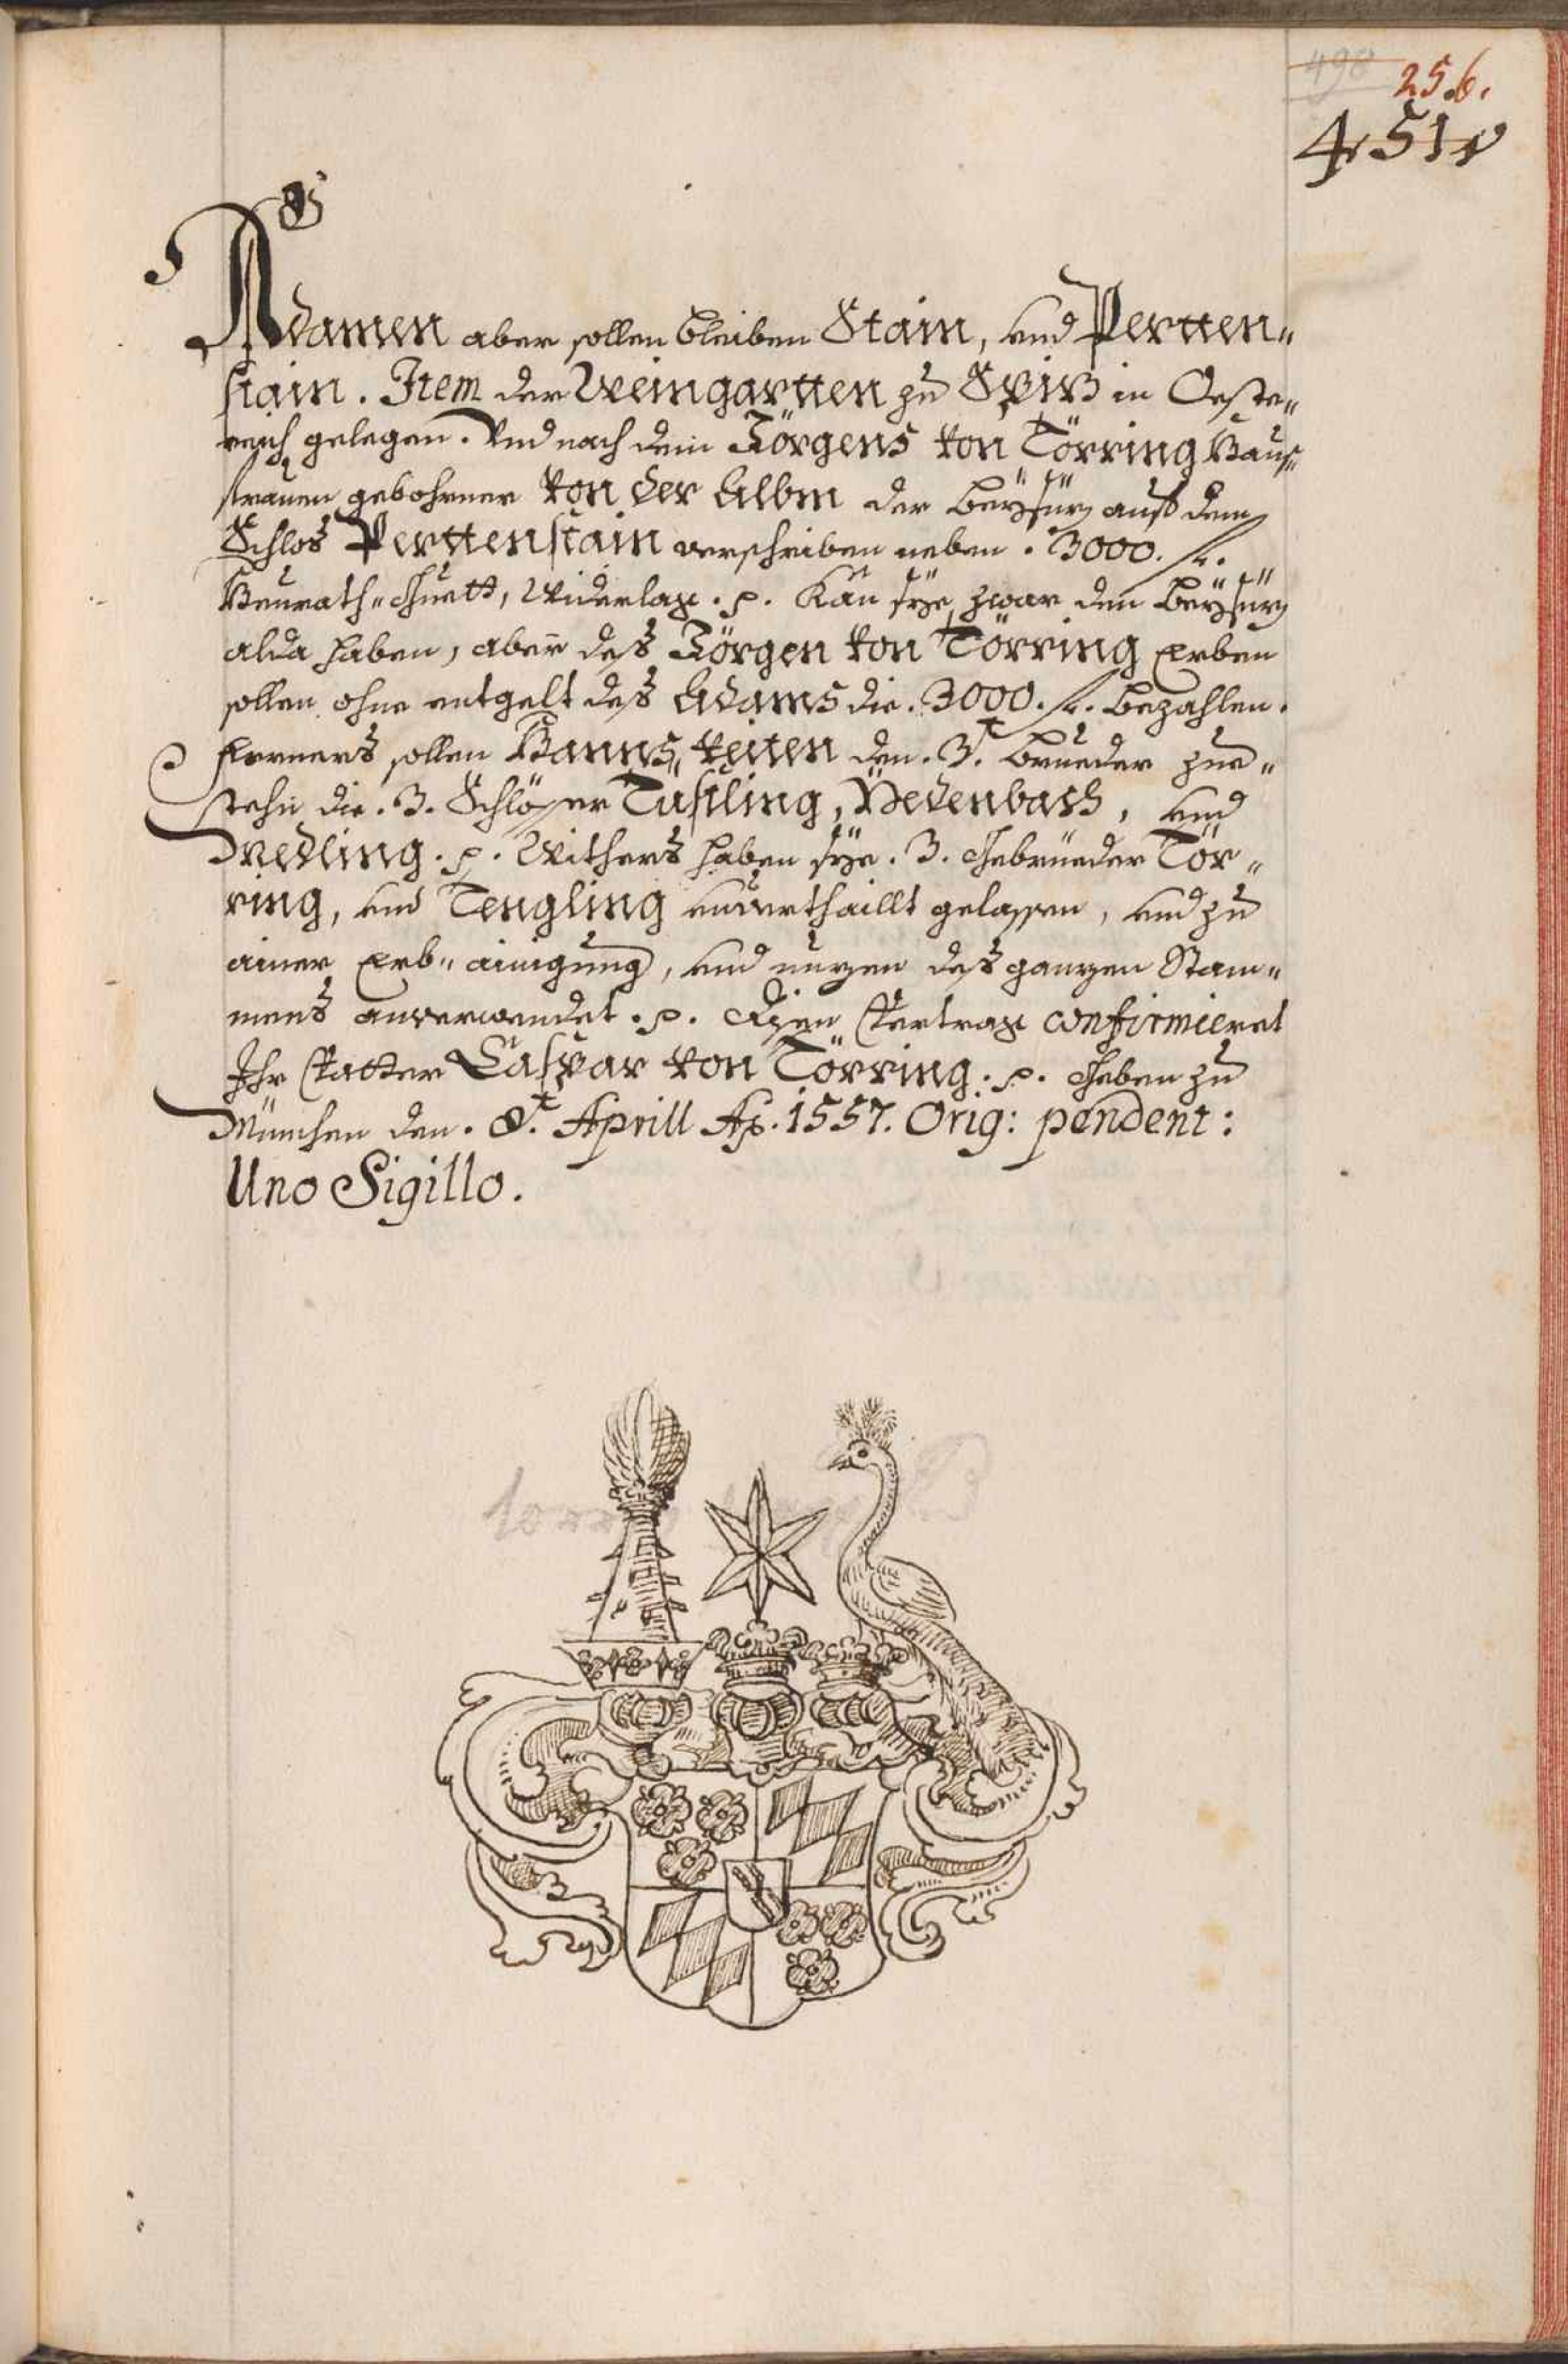 498
256.
451
Adamen aber sollen bleiben Stain, und Pertten„
stain. Item der Weingartten zu Spiz in Oeste„
reich gelegen. Und nach dem Görgens von Törring Haus„
frauen gebohrner von der Albm der Beysiz auß dem
Schlos Perttenstain verschriben neben. 3000. fl.
Heurath„ Guett, Widerlag. p. Kan sye zwar den Beysiz
alda haben, aber deß Görgen von Törring Erben
sollen ohne entgelt deß Adams die. 3000. fl. bezahlen.
Ferners sollen Hanns, Veiten den. 3.t Brueder zue„
stehn die. 3. Schlösser Tüsling, Hedenbach, und
Medling. p. Withers haben sye. 3. Gebrüeder Tör„
ring, und Tengling unverthaillt gelassen, und zu
ainer Erb„ ainigung, und nuzen deß ganzen Stam„
mens anverwendet. p. Disen Vertrag confirmieret
Ihr Vatter Caspar von Törring. p. Geben zu
München den. 8.t Aprill Ao. 1557. Orig: pendent:
Uno Sigillo.